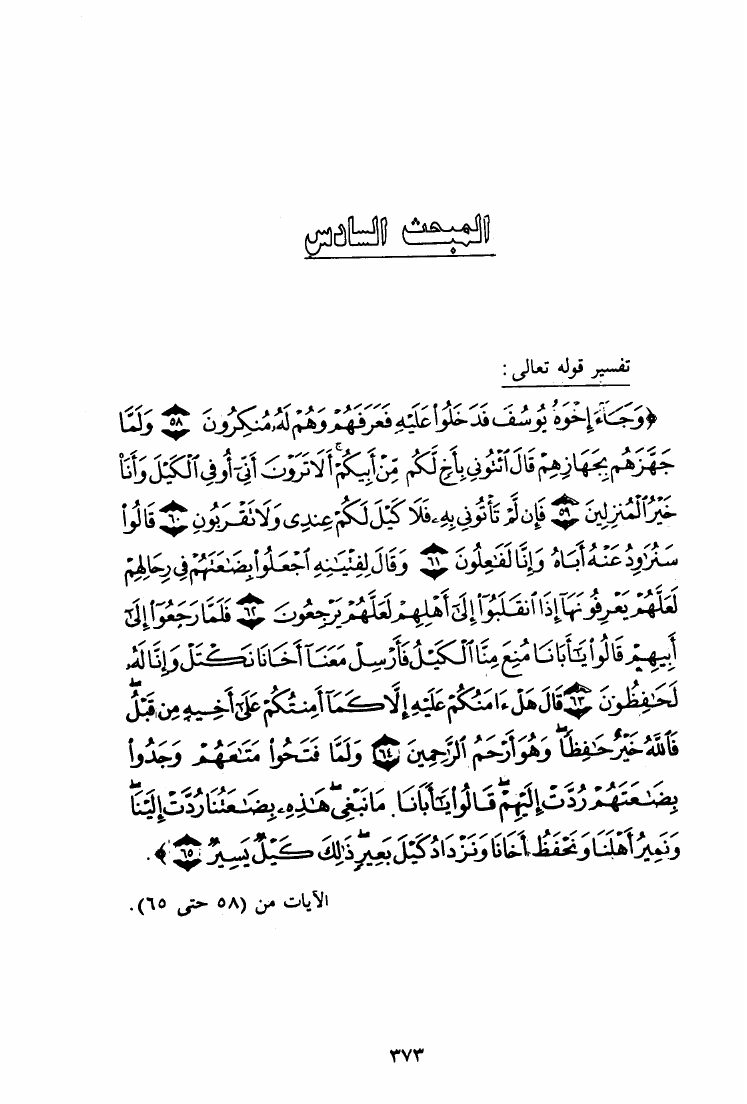 المبحث السادس
تفسير قوله تعالى :
﴿وَجَآءَ إِخْوَةُ يُوسُفَ فَدَخَلُواْ عَلَيْهِ فَعَرَفَهُمْ وَهُمْ لَهُۥ مُنكِرُونَ ٥٨ وَلَمَّا
جَهَّزَهُم بِجَهَازِهِمْ قَالَ ٱئْتُونِي بِأَخٍ لَّكُم مِّنْ أَبِيكُمْۚ أَلَا تَرَوْنَ أَنِّيٓ أُوفِي ٱلْكَيْلَ وَأَنَا۠
خَيْرُ ٱلْمُنزِلِينَ ٥٩ فَإِن لَّمْ تَأْتُونِي بِهِۦ فَلَا كَيْلَ لَكُمْ عِندِي وَلَا تَقْرَبُونِ ٦٠ قَالُواْ
سَنُرَٰوِدُ عَنْهُ أَبَاهُ وَإِنَّا لَفَٰعِلُونَ ٦١ وَقَالَ لِفِتْيَٰنِهِ ٱجْعَلُواْ بِضَٰعَتَهُمْ فِي رِحَالِهِمْ
لَعَلَّهُمْ يَعْرِفُونَهَآ إِذَا ٱنقَلَبُوٓاْ إِلَىٰٓ أَهْلِهِمْ لَعَلَّهُمْ يَرْجِعُونَ ٦٢ فَلَمَّا رَجَعُوٓاْ إِلَىٰٓ
أَبِيهِمْ قَالُواْ يَٰٓأَبَانَا مُنِعَ مِنَّا ٱلْكَيْلُ فَأَرْسِلْ مَعَنَآ أَخَانَا نَكْتَلْ وَإِنَّا لَهُۥ
لَحَٰفِظُونَ ٦٣ قَالَ هَلْ ءَامَنُكُمْ عَلَيْهِ إِلَّا كَمَآ أَمِنتُكُمْ عَلَىٰٓ أَخِيهِ مِن قَبْلُۖ
فَٱللَّهُ خَيْرٌ حَٰفِظًاۖ وَهُوَ أَرْحَمُ ٱلرَّٰحِمِينَ ٦٤ وَلَمَّا فَتَحُواْ مَتَٰعَهُمْ وَجَدُواْ
بِضَٰعَتَهُمْ رُدَّتْ إِلَيْهِمْۖ قَالُواْ يَٰٓأَبَانَا مَا نَبْغِيۖ هَٰذِهِۦ بِضَٰعَتُنَا رُدَّتْ إِلَيْنَاۖ
وَنَمِيرُ أَهْلَنَا وَنَحْفَظُ أَخَانَا وَنَزْدَادُ كَيْلَ بَعِيرٍۖ ذَٰلِكَ كَيْلٌ يَسِيرٌ ٦٥﴾ .
الآيات من (٥٨ حتى ٦٥) .
٣٧٣